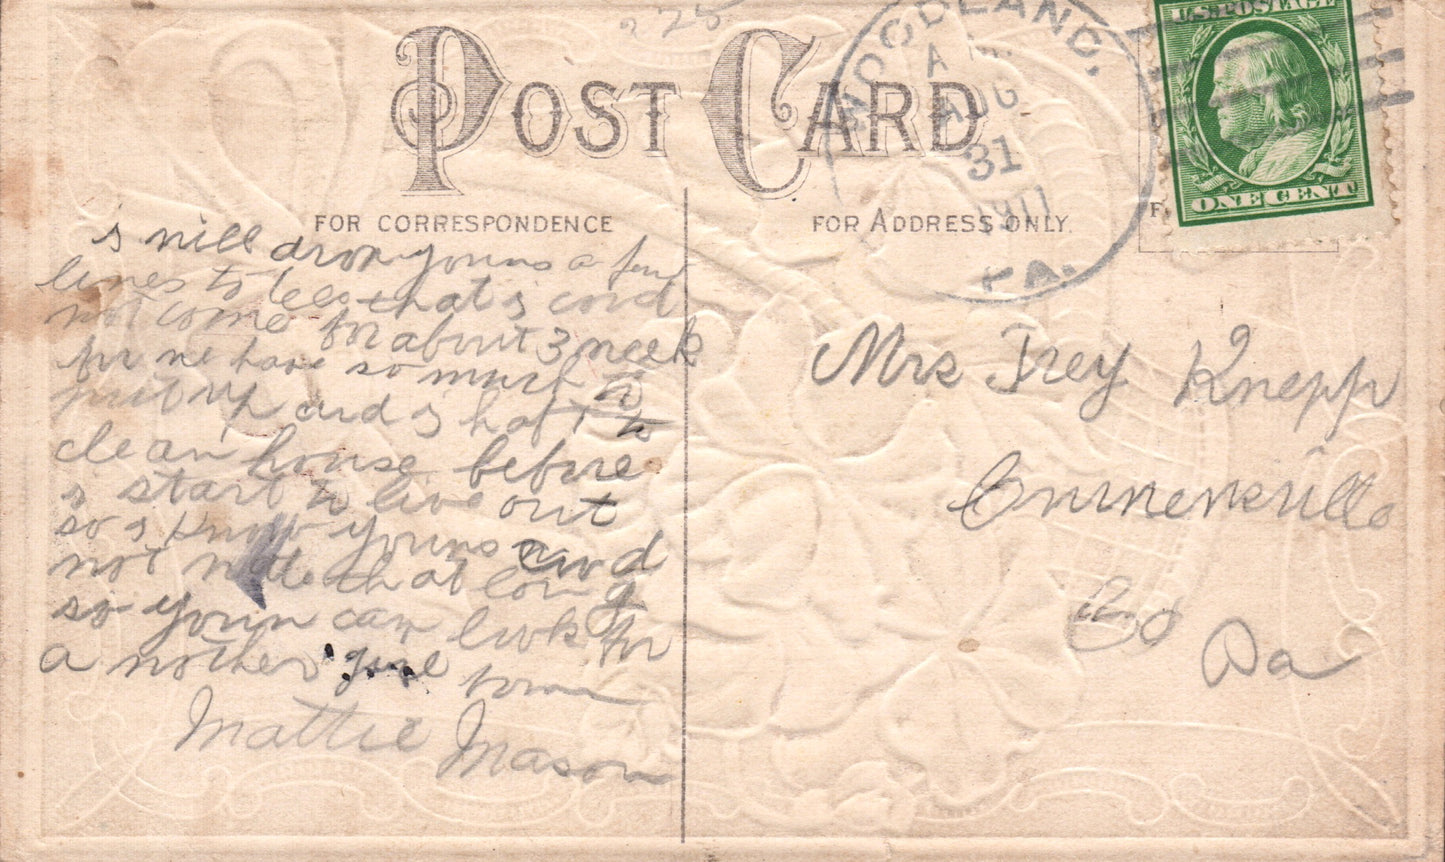 225
POST CARD
WOODLAND,
AUG
31
1911
PA.
U.S. POSTAGE
ONE CENT
FOR CORRESPONDENCE
FOR ADDRESS ONLY.
F
s will drop youns a few
lines to tell that s cord
not come for about 3 week
for we have so much to
put up and s haft to
clean house before
s start to live out
so s know youns
not that long
so youn can look for
a nother
Mattie Mason
Mrs Trey Knepp
Co
Pa